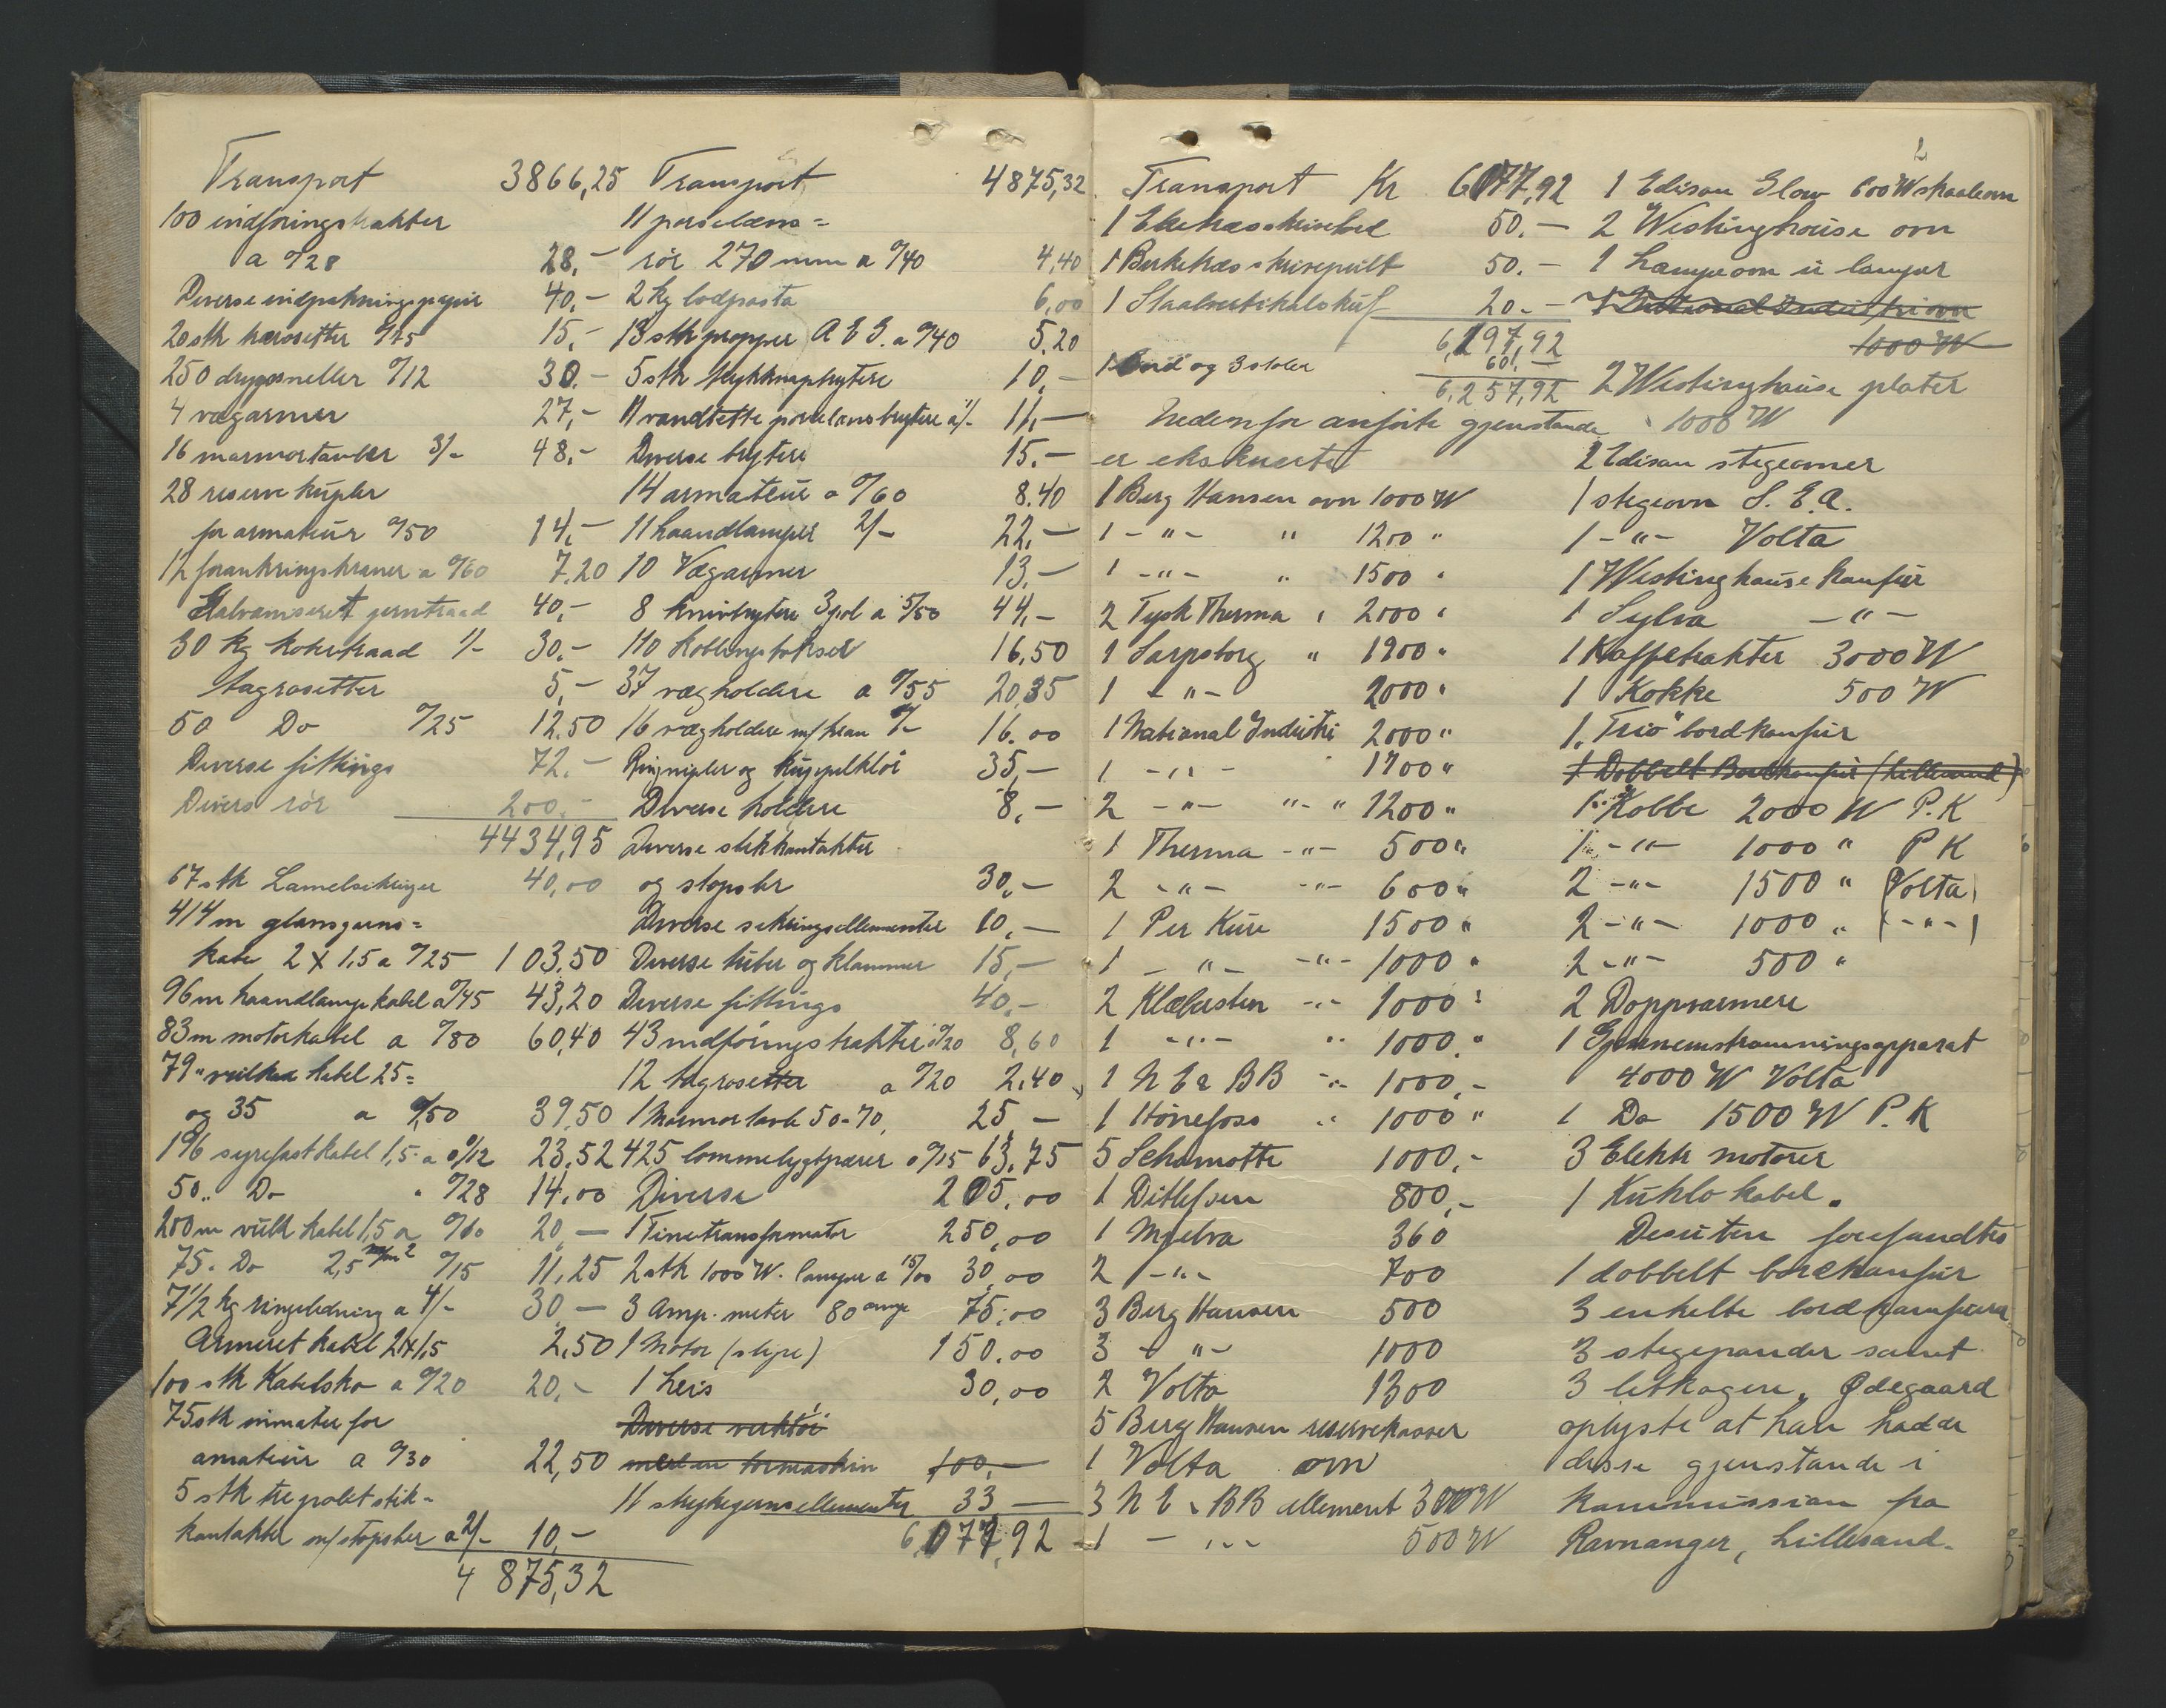 Transport 3866,25
100 indføringstrakter
a 0/28 28,-
Diverse indpakningspapir 40,-
20 stk rosetter 0/75 15,-
250 drypsneller 0/12 30.-
4 vægarmer 27,-
16 marmortavler 3/- 48,-
28 reserve kupler
for armatur 0/50 14,-
12 forankringskraner a 0/60 7,20
Galvaniseret jerntraad 40,-
30 kg kokstraad 1/- 30,-
tagrosetter 5,-
50 Do 0/25 12,50
Diverse fittings 72.-
Divers rør 200.-
4434,95
67 stk Lamelsikringer 40,00
414 m glansgarns=
kabe 2 X 1,5 a 0/25 103,50
96 m haandlampekabel a 0/45 43,20
83 m motorkabel a 0/80 60,40
79 " vulkan kabel 25=
og 35 a 0,50 39,50
196 syrefast kabel 1,5 a 0/12 23,52
50 " Do " 0/28 14,00
200 m vulk kabel 1,5 a 0/10 20,-
75 " Do 2,5 m/m2 0/15 11,25
7 1/2 kg ringeledning a 4/- 30 -
Armeret kabel 2X1,5 2,50
100 stk Kabelsko a 0/20 20.-
75 stk inmater for
amatur a 0/30 22,50
5 stk trepolet stik-
kontakter m/stopsler a 2/- 10,-
4 875,32
Transport 4875,32
11 porselæns=
rør 270 mm a 0/40 4,40
2 kg lodpasta 6,00
13 stk propper A E G. a 0/40 5,20
5 stk trykknapbrytere 10,-
11 vandtette porselansbrytere a 1/- 11,-
Diverse brytere 15.-
14 armatur a 0/60 8.40
11 haandlamper 2/- 22,-
10 Vægarmer 13,-
8 knivbrytere 3 pol a 5/50 44,-
110 koblingsbokser 16,50
37 vægholdere a 0/55 20,35
16 vægholdere m/kran 1/- 16.00
Ringnipler og kuppelklør 35,-
Diverse holdere 8,-
Diverse stikkontakter
og stopsler 30,-
Diverse sikringsellementer 10.-
Diverse tuber og klammer 15,-
Diverse fittings 40,-
43 indføringstrakter a 0/20 8,60
12 tagrosetter a 0/20 2.40
1 Marmortavle 50-70, 25,-
425 lommelygtpærer a 0/15 63,75
Diverse 205,00
1 Tinetransformator 250,00
2 stk 1000 W. lamper a 15/00 30,00
3 Amp. meter 80 amp 75,00
1 Motor (slipe) 150.00
1 Heis 30,00
Diverse verktøi
med en bormaskin 100,-
11 strykejernsellementer 33 -
6,077,92
Transport Kr 6077,92
1 Eketræsskrivebord 50.-
1 Birketræs skrivepult 50.-
1 Staalvertikalskuf 20.-
6,197,92
1 Bord og 3 stoler 60,-
6,257,92
Nedenfor anførte gjenstande
er ekskuerte
1 Berg Hansen ovn 1000 W
1 - " - " 1200 "
1 - " - " 1500 "
2 Tysk Therma " 2000 "
1 Sarpsborg " 1900 "
1 - " - 2000 "
1 National Industri 2000 "
1 - " - 1700 "
2 - " - " - " 1200 "
1 Therma - " - 500 "
2 - " - - " - 600 "
1 Per Kure 1500 "
1 - " - - " - 1000 "
2 Klæbersten - " - 1000 "
1 - " - " 1000 "
1 N E & BB - " - 1000,-
1 Hønefoss " 1000 "
5 Schamotte 1000,-
1 Ditlefsen 800,-
1 Mjelva 360
2 - " - 700
3 Berg Hansen 500
3 - " - 1000
2 Volta 1300
5 Berg Hansen reservekasser
1 Volta ovn
3 N E & BB ellement 300 W
1 - " - 500 W
2
1 Edison Glow 600 W skaalovn
2 Westinghouse ovn
1 Lampeovn u lamper
1 National Industri ovn
1000 W
2 Westinghouse plater
1000 W
2 Edison stegeovner
1 stegeovn S. E. A.
1 - " - Volta
1 Westinghouse komfur
1 Sylva - " -
1 Kaffetrakter 3000 W
1 Kokke 500 W
1 "Trio" bordkomfur
1 Dobbelt Bordkomfur (Lillesand)
1 Kolbe 2000 W P.K
1 - " - 1000 " P K
2 - " - 1500 " (Volta)
2 - " - 1000 " ( - " - )
2 - " - 500 "
2 Doppvarmere
1 Gjennemstrømningsapparat
4000 W Volta
1 Do 1500 W P.K
3 Elektr motorer
1 Kuhlo kabel.
Desuten forefandtes
1 dobbelt bordkomfur
3 enkelte bordkomfurer
3 stegepander samt
3 letkogere. Ødegaard
oplyste at han hadde
disse gjenstande i
kommission fra
Ravnanger, Lillesand.